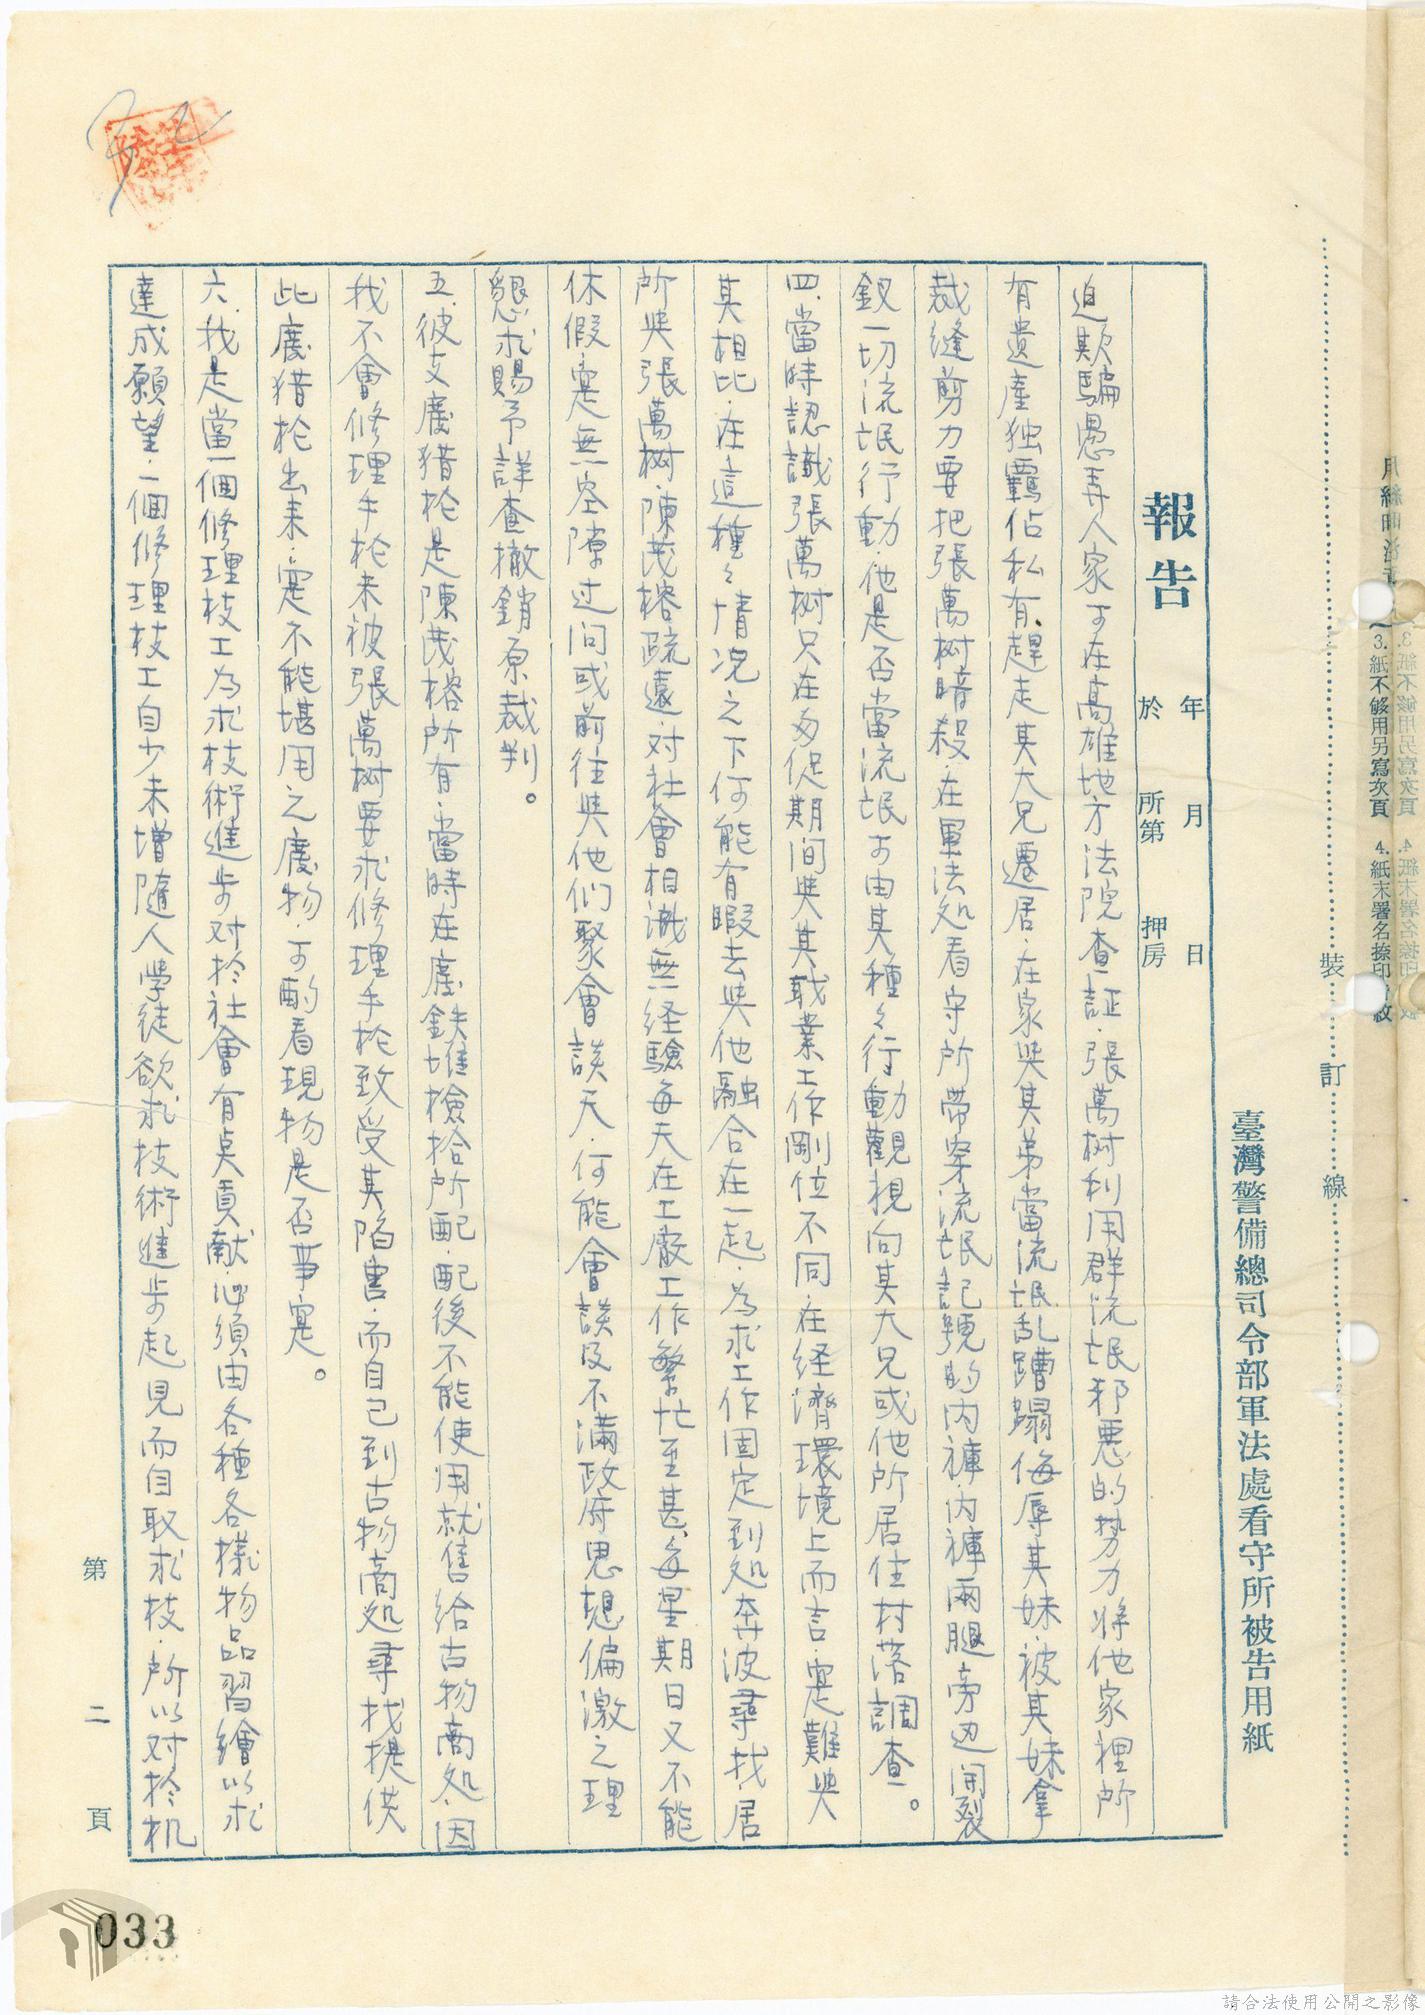 臺灣警備總司令部軍法處看守所被告用紙
報告
年 月 日
於 所第 押房
迫欺騙愚弄人家可在高雄地方法院查証.張萬树利用群流氓邪惡的势力将他家裡所
有遺産独霸佔私有.趕走其大兄遷居.在家與其弟當流氓乱蹧蹋侮辱其妹.被其妹拿
裁缝剪刀要把張萬树暗殺.在軍法処看守所帶案流氓記號的內褲.內褲兩腿旁边開裂
釵一切流氓行動.他是否當流氓可由其種々行動觀視向其大兄或他所居住村落調查。
四.當時認識張萬树只在匆促期间與其职業工作剛位不同.在経濟環境上而言寔難與
其相比.在這種々情况之下何能有暇去與他融合在一起.為求工作固定到処奔波尋找.居
所與張萬树.陳茂榕疏遠.对社會相識無経驗每天在工廠工作繁忙至甚.每星期日又不能
休假.寔無空隙过问或前往與他们聚會談天.何能會談及不滿政府思想偏激之理
懇求賜予詳查撤銷原裁判。
五.彼支廢猎枪是陳茂榕所有.當時在廢鉄堆檢拾所配.配後不能使用就售給古物商処.因
我不會修理手枪来被張萬树要求修理手枪致受其陷害.而自己到古物商処尋找提供
此廢猎枪出来.寔不能堪用之廢物.可酌看現物是否事寔。
六.我是當一個修理技工為求技術進步对於社會有奌貢献.必須由各種各樣物品習繪以求
達成願望.一個修理技工自少未增隨人学徒欲求技術進步起見而自取求技.所以对於机
第 二 頁
裝 訂 線
3.紙不够用另寫次頁 4.紙末署名捺印
033
請合法使用公開之影像